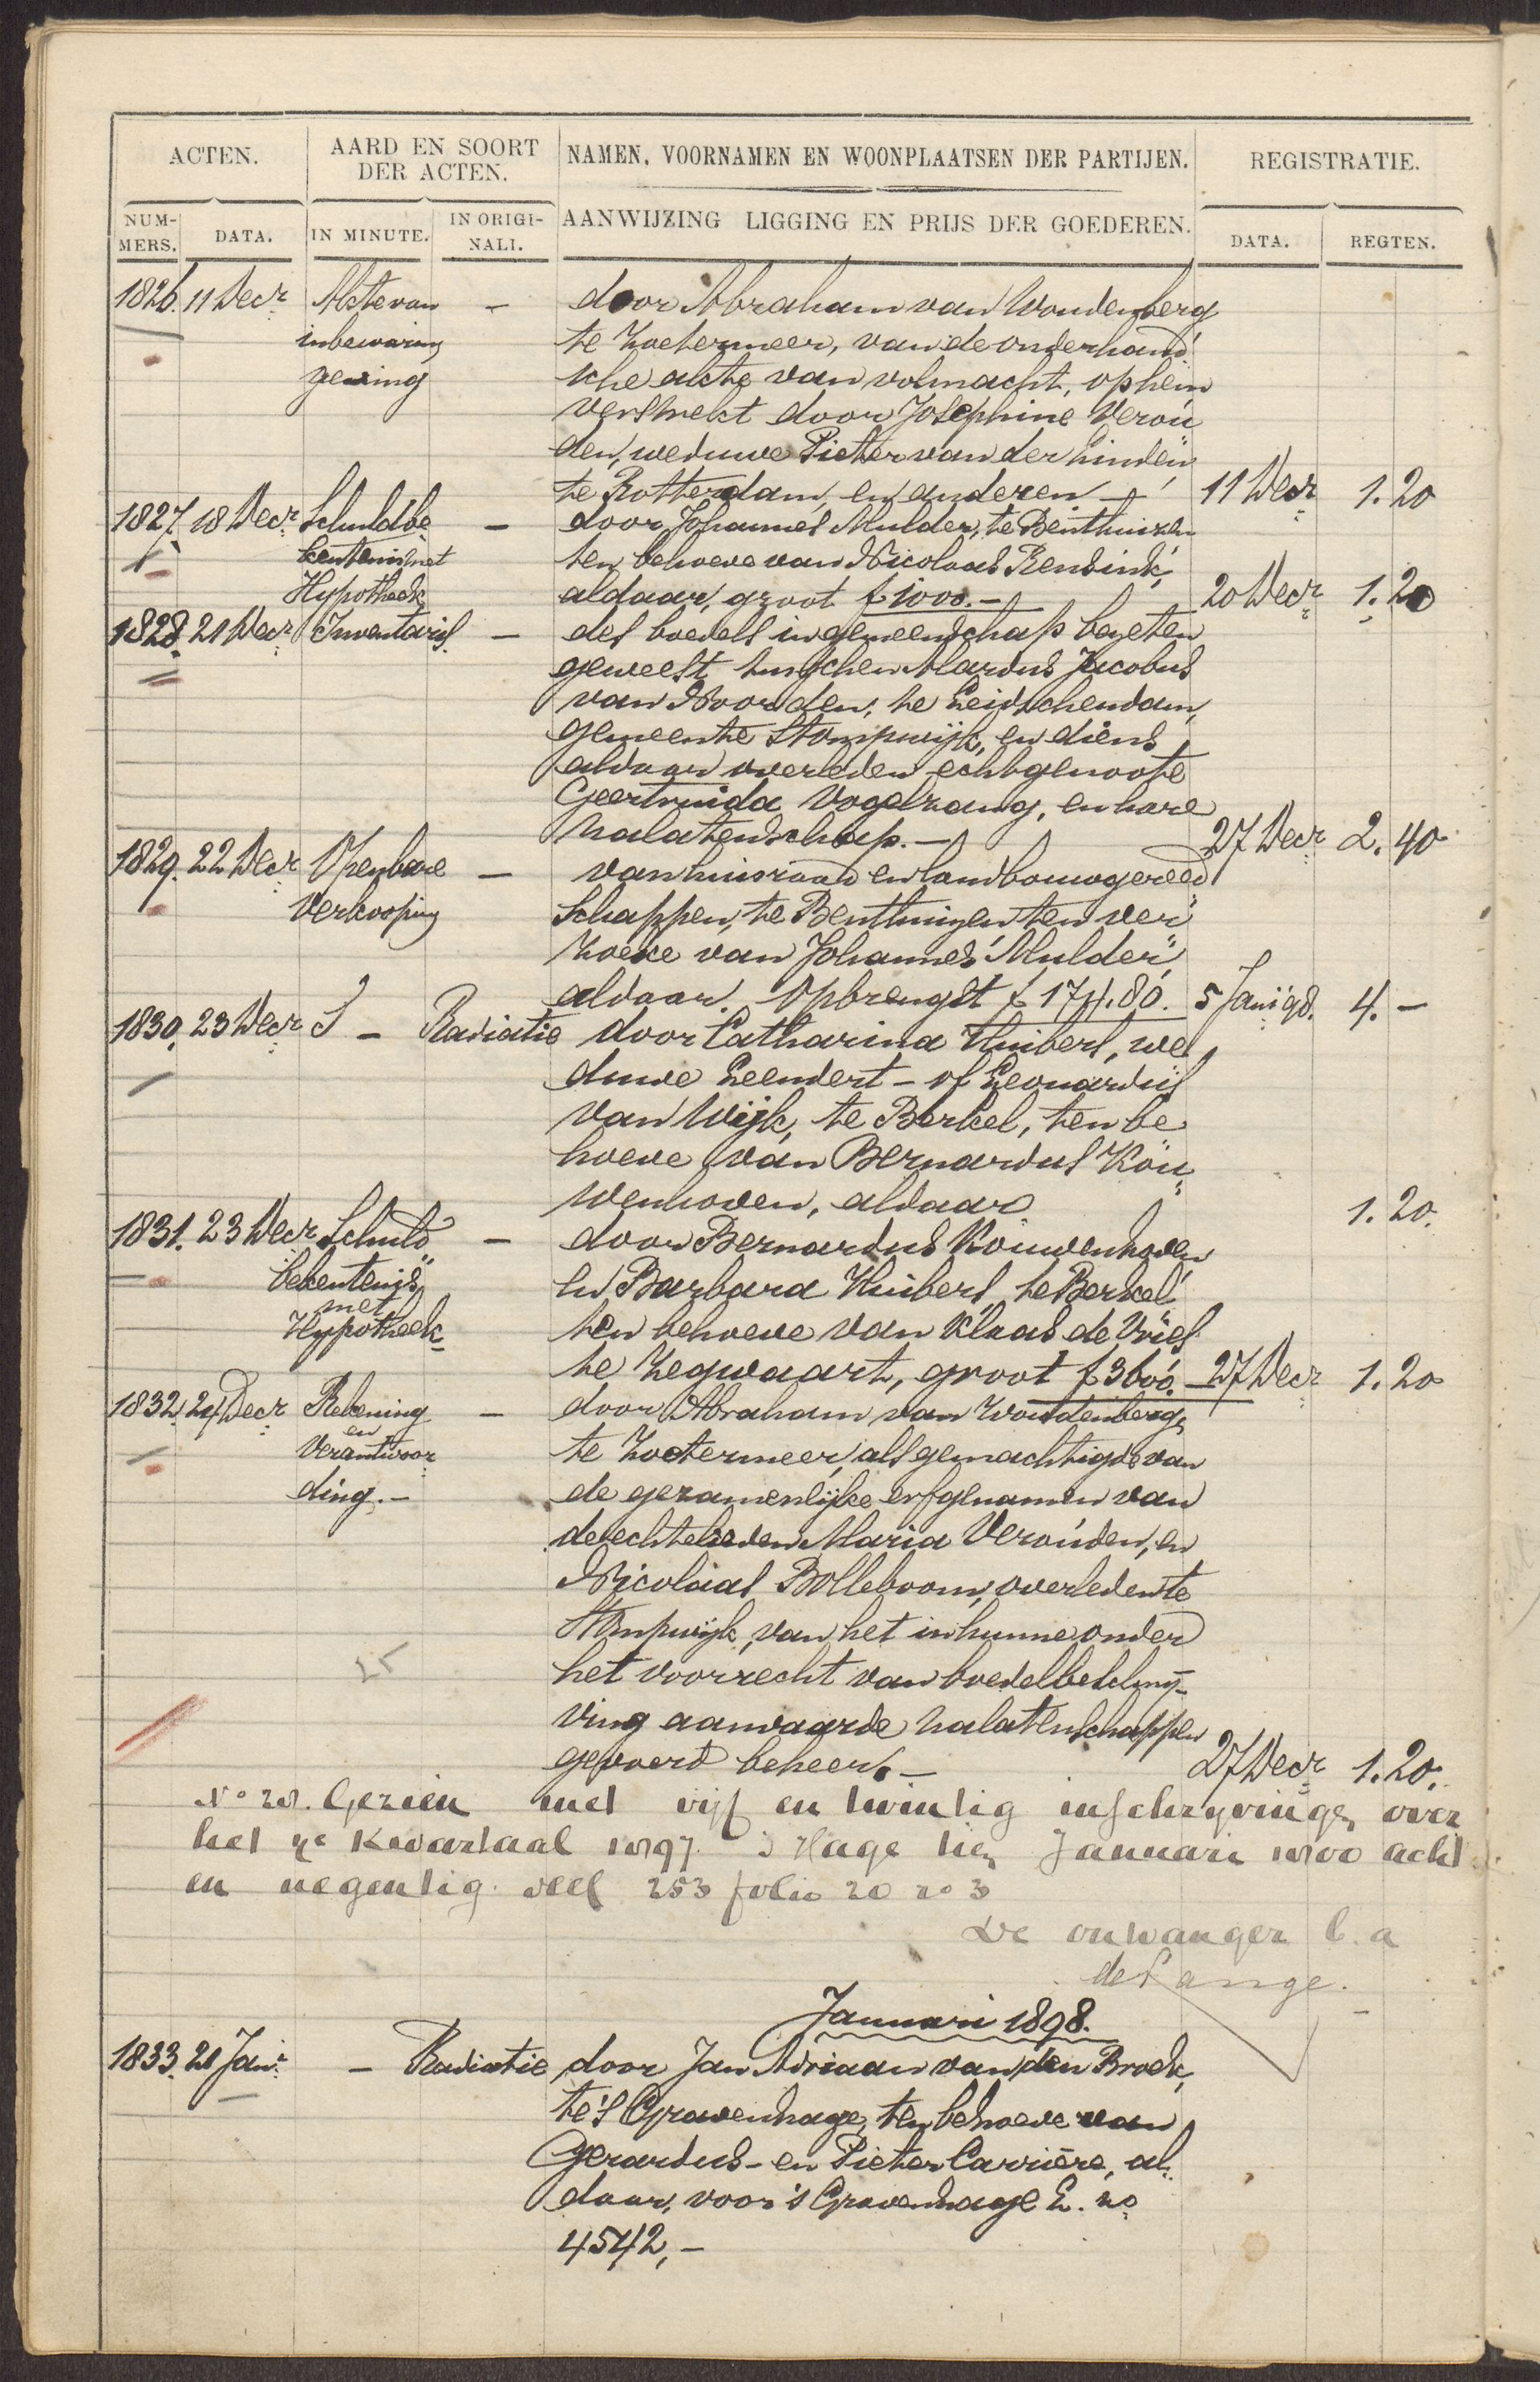 ACTEN.
AARD EN SOORT DER ACTEN.
NAMEN, VOORNAMEN EN WOONPLAATSEN DER PARTIJEN.
REGISTRATIE.
NUMMERS.
DATA.
IN MINUTE.
IN ORIGINALI.
AANWIJZING LIGGING EN PRIJS DER GOEDEREN.
DATA.
REGTEN.
1826. 11 Decr Akte van - door Abraham van Woudenberg
inbewaring te Zoetermeer, van de onderhand
geving sche akte van volmacht, op hem
verstrekt door Josephine Verou
den, weduwe Pieter van der Linden
te Rotterdam, en anderen - 11 Decr 1.20
1827. 18 Decr Schuldbe - door Johannes Mulder, te Benthuizen
kentenis met ten behoeve van Nicolaas Rensink,
Hypotheek aldaar, groot f 1000.- 20 Decr 1.20
1828. 21 Decr Inventaris. - des boedels in gemeenschap bezeten
geweest tusschen Marius Jacobus
van Noorden, te Leidschendam,
gemeente Stompwijk, en diens
aldaar overleden echtgenoote
Geertruida Vogelzang, en hare
nalatenschap. - 27 Decr 2.40
1829. 22 Decr Openbare - van huisraad en landbouwgereed
verkooping schappen, te Benthuizen ten ver
zoeke van Johannes Mulder,
aldaar. Opbrengst f 174.80. 5 Jan: 98. 4.-
1830. 23 Decr - Radiatie door Catharina Huibers, we
duwe Leendert - of Leonardus
van Wijk, te Berkel, ten be
hoeve van Bernardus Kou
wenhoven, aldaar 1.20.
1831. 23 Decr Schuld - door Bernardus Kouwenhoven
bekentenis en Barbara Huibers, te Berkel
met
Hypotheek ten behoeve van Klaas de Vries
te Zegwaart, groot f 3600.- 27 Decr 1.20
1832. 24 Decr Rekening - door Abraham van Woudenberg,
en
Verantwoor te Zoetermeer, als gemachtigde van
ding.- de gezamenlijke erfgenamen van
de echtelieden Maria Verouden, en
Nicolaas Bolleboom, overleden te
Stompwijk, van het in hunne onder
het voorrecht van boedelbeschrij-
ving aanvaarde nalatenschappen
gevoerd beheer.- 27 Decr 1.20.
25
Gezien met vijf en twintig inschrijvingen over
het 4e Kwartaal 1897. 's Hage tien Januari 1800 acht
en negentig. deel 253 folio 20 no 3
De ontvanger b.a
de Lange.
Januari 1898.
1833. 21 Jan: - Radiatie door Jan Adriaan van den Broek,
te 's Gravenhage, ten behoeve van
Gerardus- en Pieter Carrière, al
daar, voor 's Gravenhage L. no
4542,-